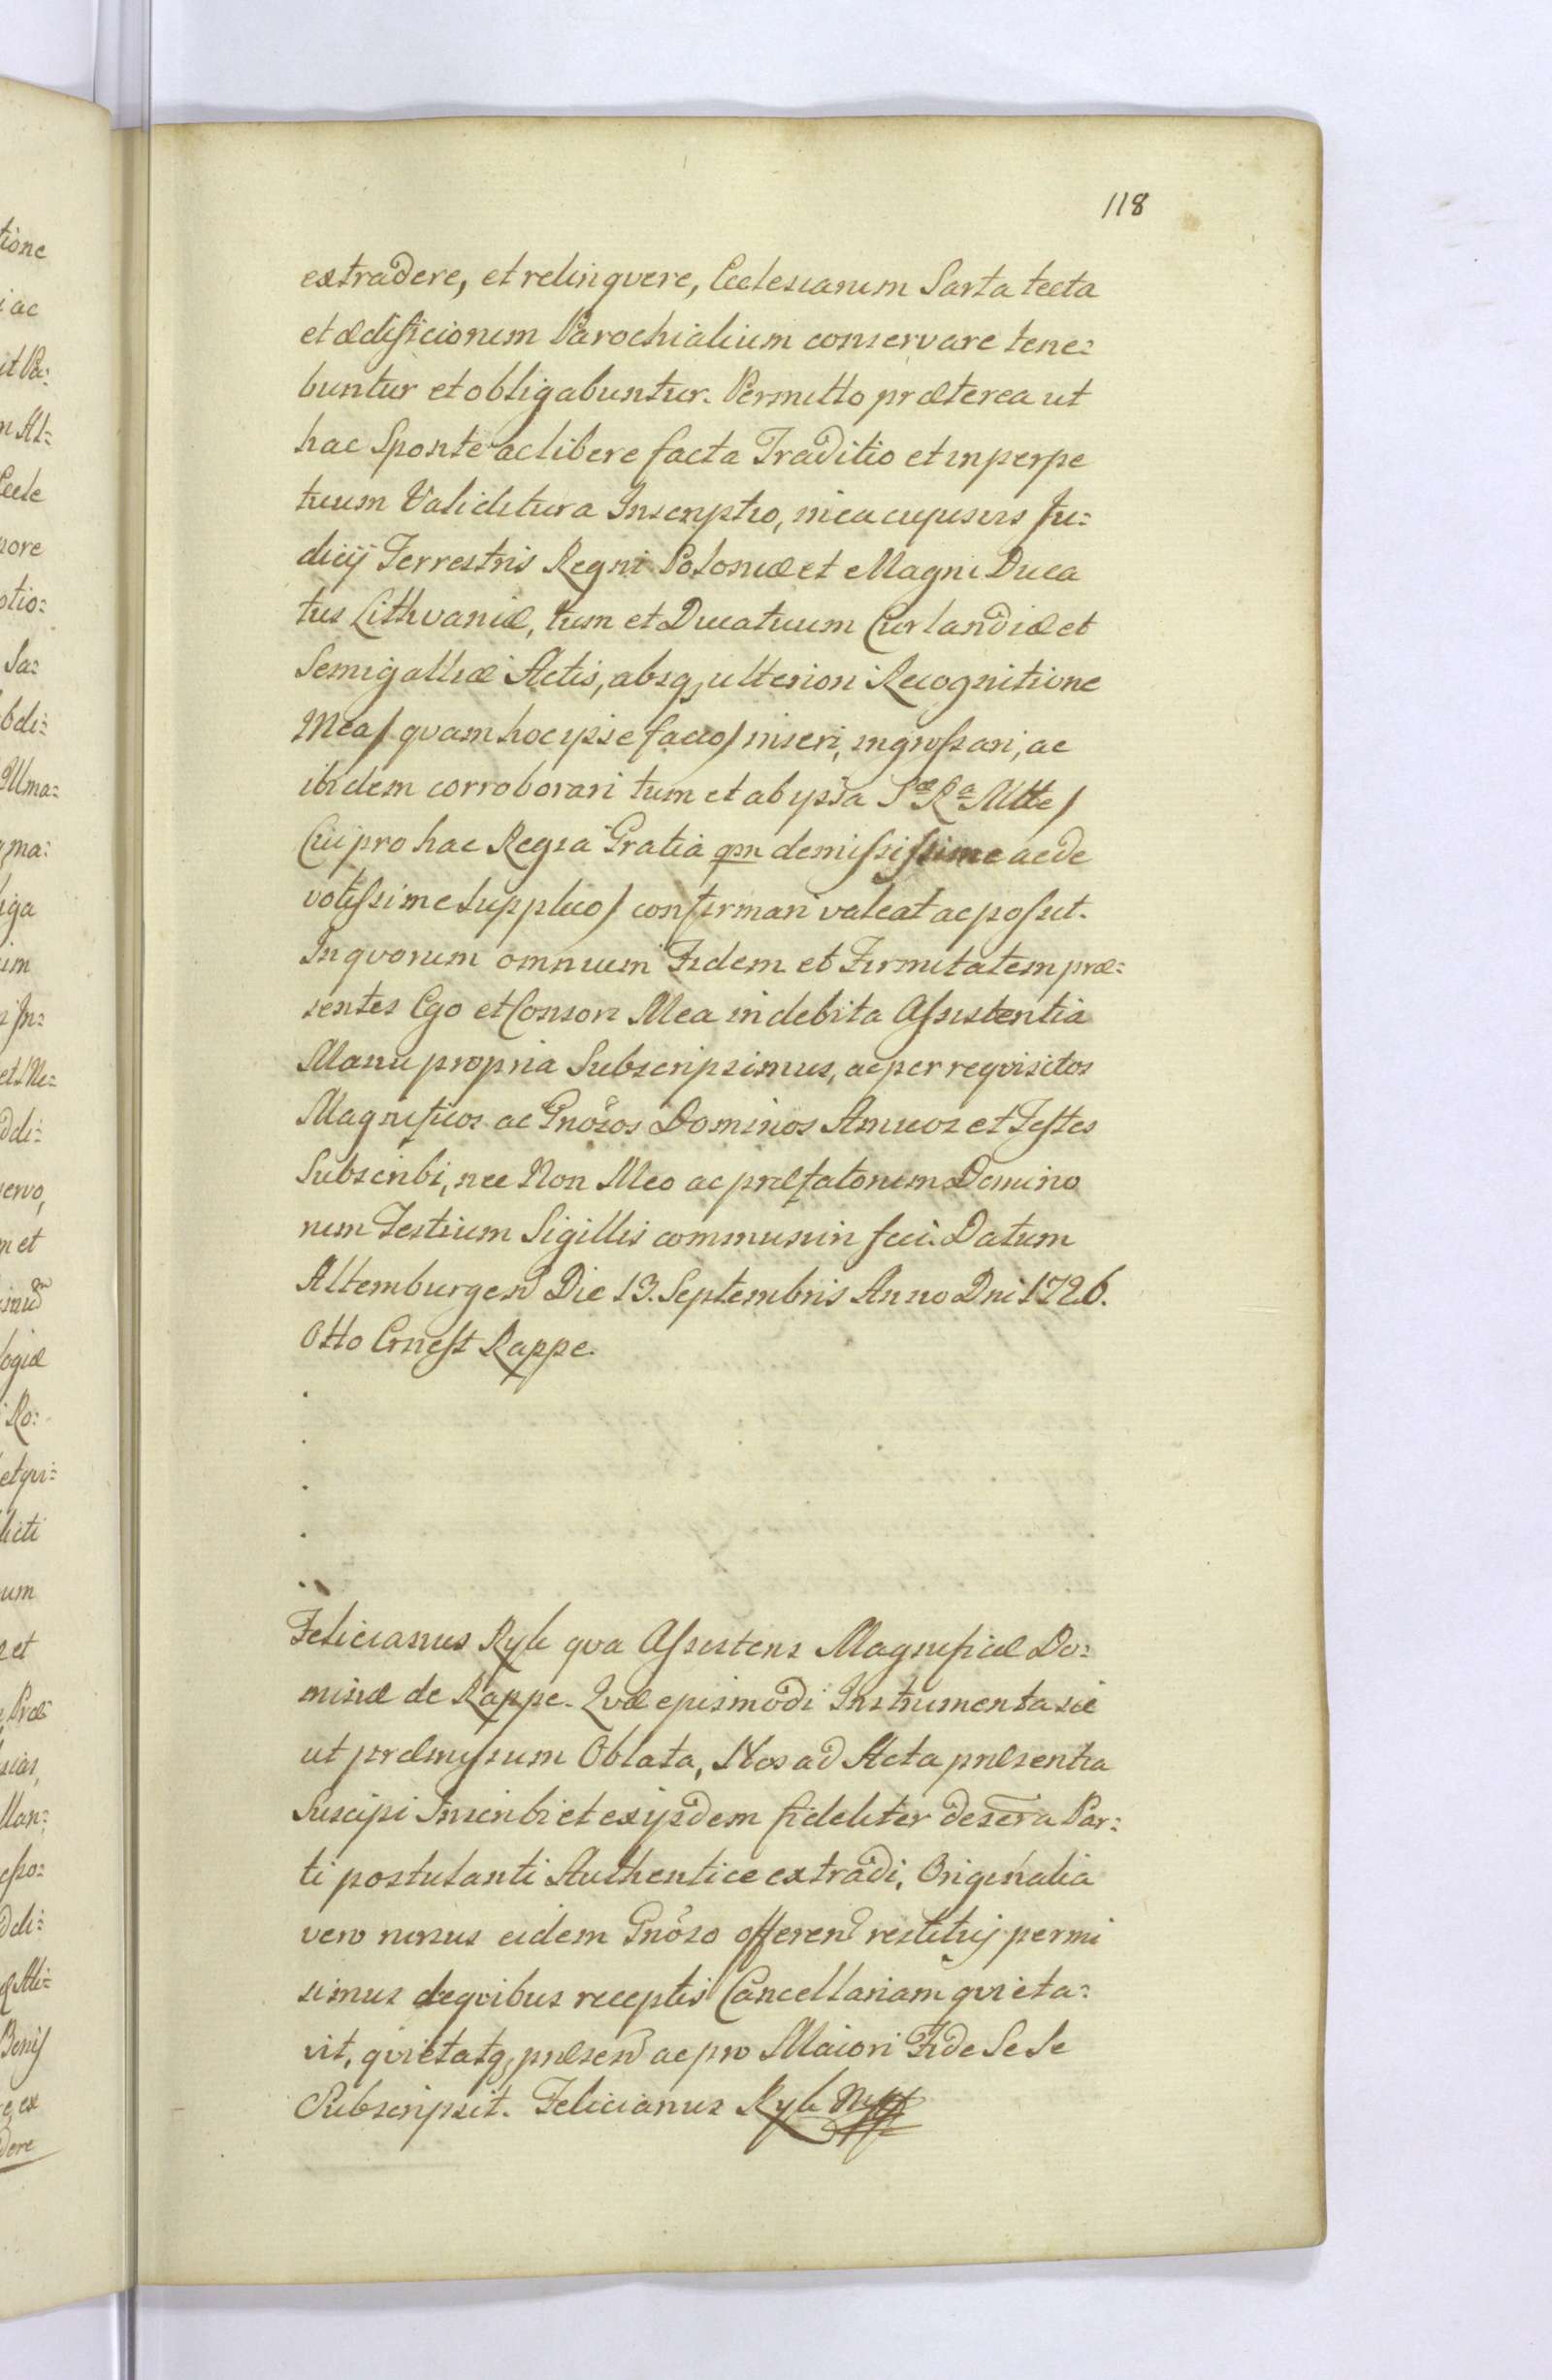 118
extradere, et relinqvere, Ecclesiarum Sarta tecta
et ædificiorum Parochialium conservare tene=
buntur et obligabuntur. Permitto præterea ut
hac Sponte ac libere facta Traditio et in perpe
tuum Validitura Inscriptio, mea cujusvis Ju=
dicij Terrestris Regni Poloniæ et Magni Duca
tus Lithvaniæ, tum et Ducatuum Curlandiæ et
Semigalliæ Actis, absq, ulteriori Recognitione
Mea/ qvam hoc ipse facio/ inseri, ingrossari, ac
ibidem corroborari tum et ab ypsa Sæ Ra Mtte/
Cui pro hac Regia Gratia qm demississime ac de
votissime Supplico/ confirmari valeat ac possit.
In qvorum omnium Fidem et Firmitatem præ=
sentes Ego et Consors Mea in debita Assistentia
Manu propria Subscripsimus, ac per reqvisitos
Magnificos ac Gnosos Dominos Amicos et Testes
Subscribi, nec Non Meo ac præfatorum Domino
rum Testium Sigillis communiri feci. Datum
Altemburgen Die 13. Septembris Anno Dni 1726.
Otto Ernest Rappe.
Felicianus Ryk qva Assistens Magnificæ Do=
minæ de Rappe. Qvæ ejusmodi Instrumenta sic
ut præmissum Oblata, Nos ad Acta præsentia
Suscipi Inscribi et ex ijsdem fideliter descra Par=
ti postulanti Authentice extradi, Originalia
vero rursus eidem Gnoso offeren restitui permi
simus de qvibus receptis Cancellariam qvieta=
vit, qvietatq, præsen ac pro Maiori Fide Se Se
Subscripsit. Felicianus Ryk